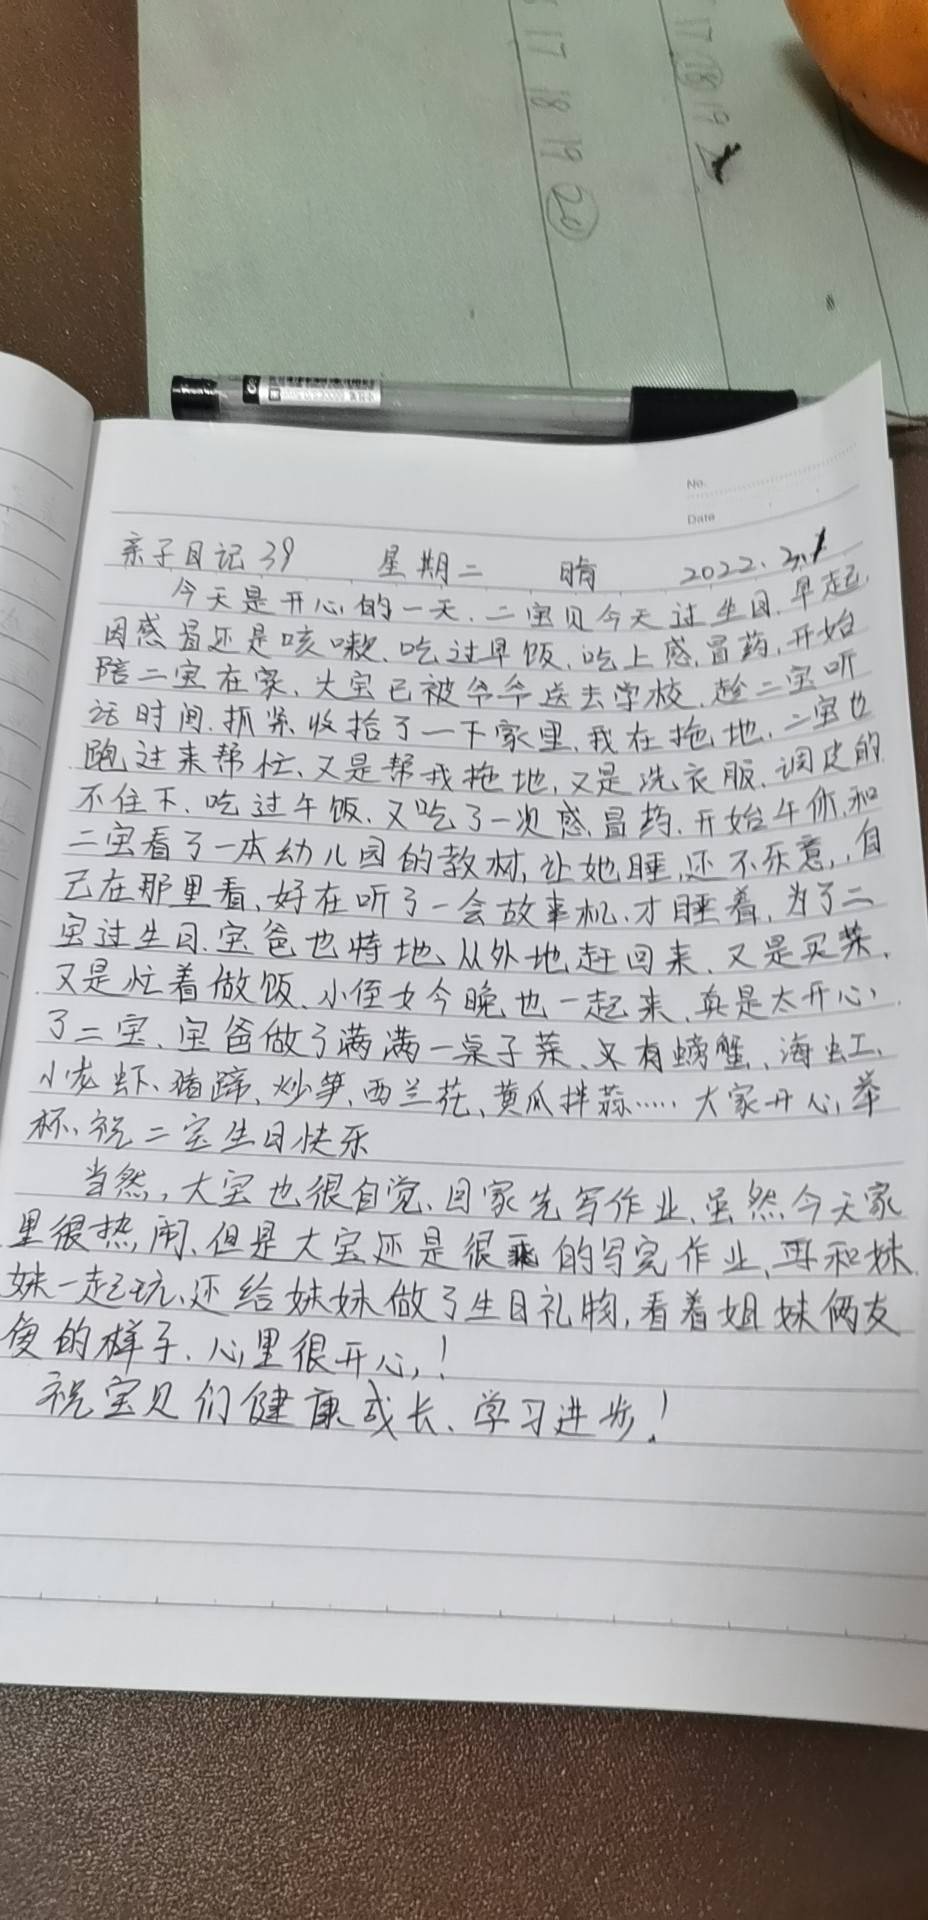 17 18 19 20
17 18 19
No.
Date
亲子日记39 星期二 晴 2022.3.1
今天是开心的一天.二宝贝今天过生日.早起,
因感冒还是咳嗽.吃过早饭.吃上感冒药,开始
陪二宝在家、大宝已被爷爷送去学校.趁二宝听
话时间.抓紧收拾了一下家里,我在拖地,二宝也
跑过来帮忙、又是帮我拖地,又是洗衣服.调皮的
不住下.吃过午饭、又吃了一次感冒药.开始午休,和
二宝看了一本幼儿园的教材,让她睡,还不乐意,自
己在那里看,好在听了一会故事机.才睡着,为了二
宝过生日.宝爸也特地从外地赶回来、又是买菜,
又是忙着做饭、小侄女今晚也一起来,真是太开心
了二宝、宝爸做了满满一桌子菜、又有螃蟹、海虹、
小龙虾、猪蹄、炒笋、西兰花、黄瓜拌蒜…… 大家开心举
杯、祝二宝生日快乐
当然,大宝也很自觉、回家先写作业、虽然今天家
里很热闹、但是大宝还是很乖的写完作业,再和妹
妹一起玩、还给妹妹做了生日礼物,看着姐妹俩友
爱的样子.心里很开心!
祝宝贝们健康成长、学习进步!